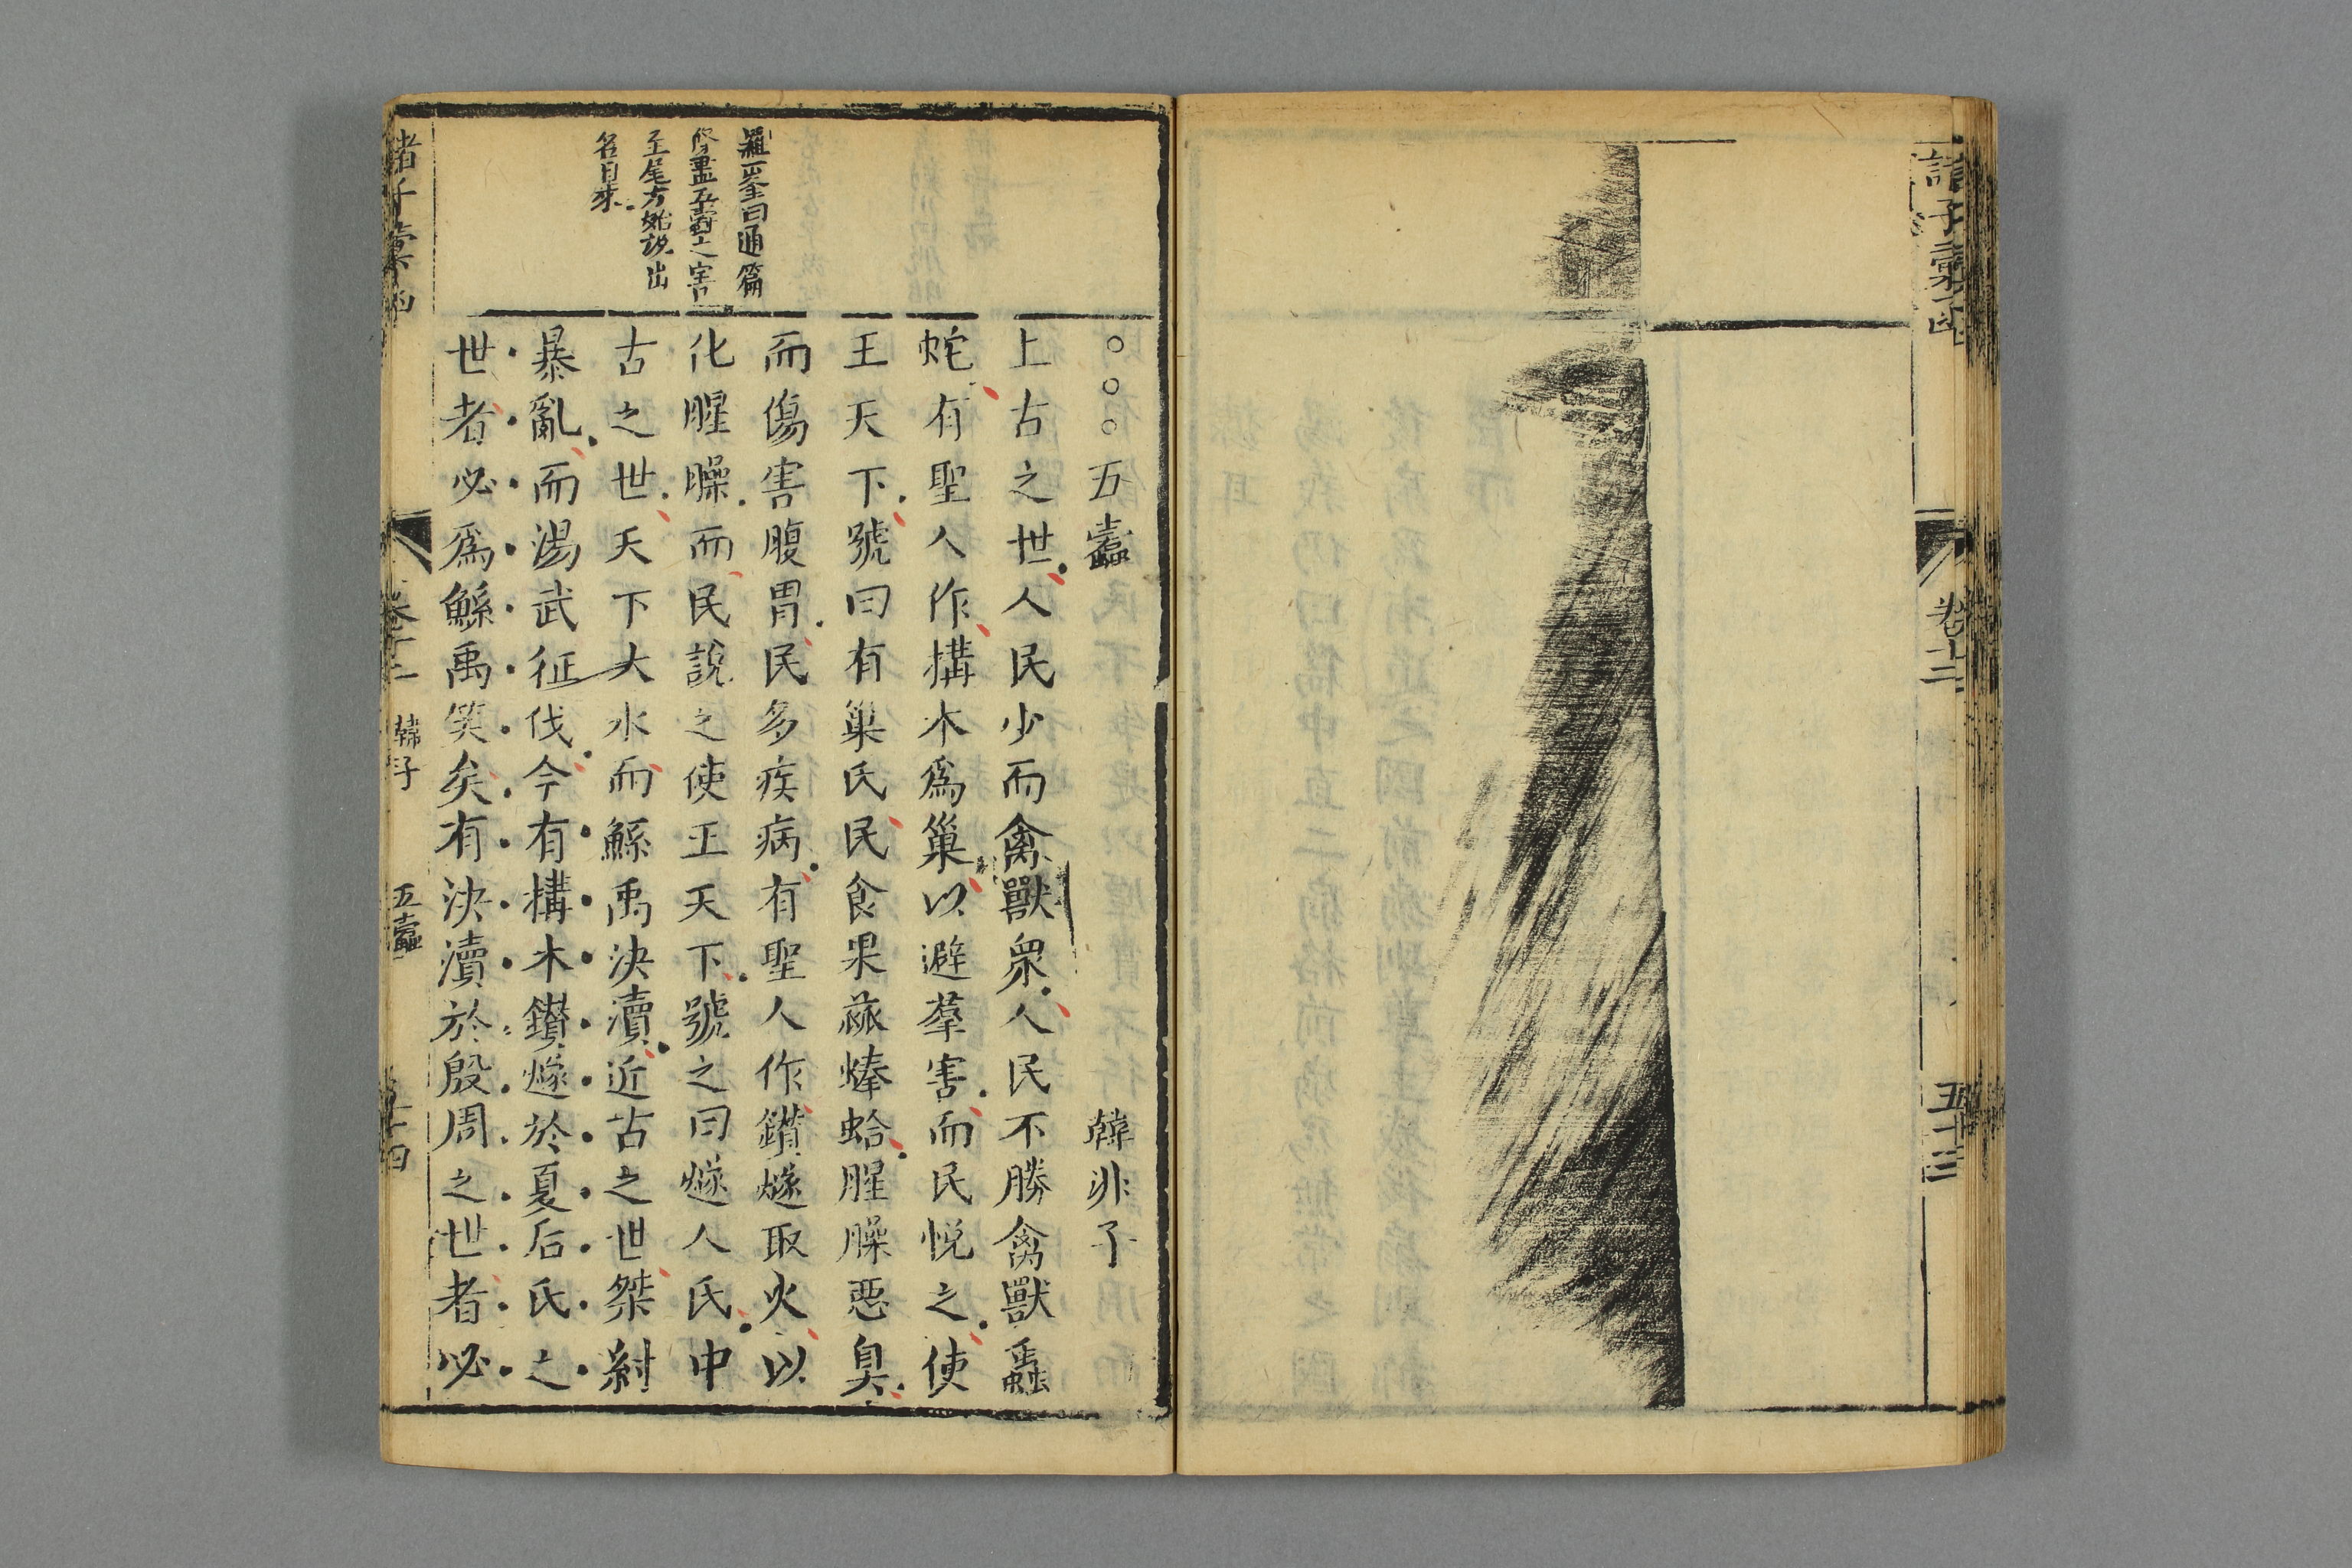 諸子彙函
卷十二
五十三
羅一峯曰通篇
俻盡五蠹之害
至尾方始說出
名目來
○○○五蠹 韓非子
上古之世人民少而禽獸衆人民不勝禽獸蟲
蛇有聖人作構木爲巢以避羣害而民悅之使
王天下號曰有巢氏民食果蓏蜯蛤腥臊惡臭
而傷害腹胃民多疾病有聖人作鑽燧取火以
化腥臊而民說之使王天下號之曰燧人氏中
古之世天下大水而鯀禹決瀆近古之世桀紂
暴亂而湯武征伐今有構木鑽燧於夏后氏之
世者必爲鯀禹笑矣有決瀆於殷周之世者必
諸子彙函
卷十二
韓子
五蠹
十四